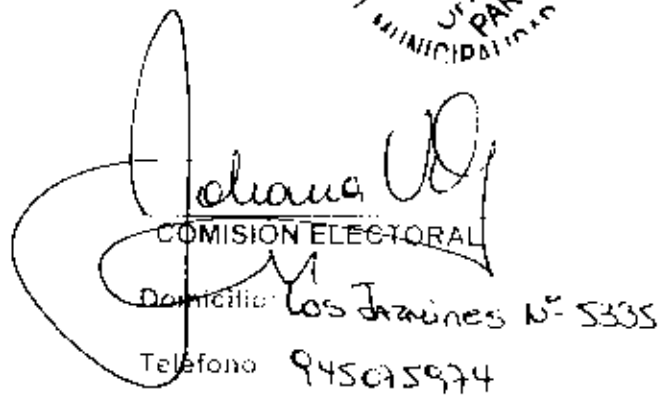 MUNICIPALIDAD
Johana
COMISION ELECTORAL
Domicilio: Los Jazmines N° 5335
Teléfono 945075974